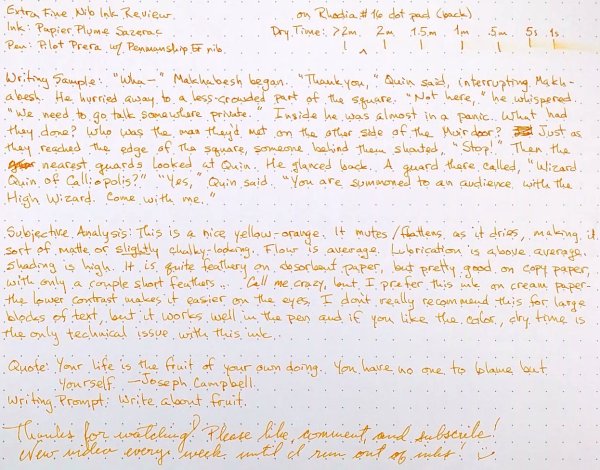 Extra Fine Nib Ink Review on Rhodia #16 dot pad (back)
Ink: Papier Plume Sazerac Dry Time: >2m 2m 1.5m 1m .5m 5s 1s
Pen: Pilot Prera w/ Penmanship EF nib.
Writing Sample: "Wha—" Makhabesh began. "Thank you," Quin said, interrupting Makh-
abesh. He hurried away to a less-crowded part of the square. "Not here," he whispered.
"We need to go talk somewhere private." Inside he was almost in a panic. What had
they done? Who was the man they'd met on the other side of the Muirdoor? Just as
they reached the edge of the square, someone behind them shouted. "Stop!" Then the
nearest guards looked at Quin. He glanced back. A guard there called, "Wizard
Quin of Calliopolis?" "Yes," Quin said. "You are summoned to an audience with the
High Wizard. Come with me."
Subjective Analysis: This is a nice yellow-orange. It mutes/flattens as it dries, making it
sort of matte or slightly chalky-looking. Flow is average. Lubrication is above average.
Shading is high. It is quite feathery on absorbent paper, but pretty good on copy paper,
with only a couple short feathers... Call me crazy, but I prefer this ink on cream paper-
the lower contrast makes it easier on the eyes, I don't really recommend this for large
blocks of text, but it works well in the pen and if you like the color, dry time is
the only technical issue with this ink.
Quote: Your life is the fruit of your own doing. You have no one to blame but
yourself. —Joseph Campbell
Writing Prompt: Write about fruit.
Thanks for watching! Please like, comment, and subscribe!
New video every week until I run out of inks! :)